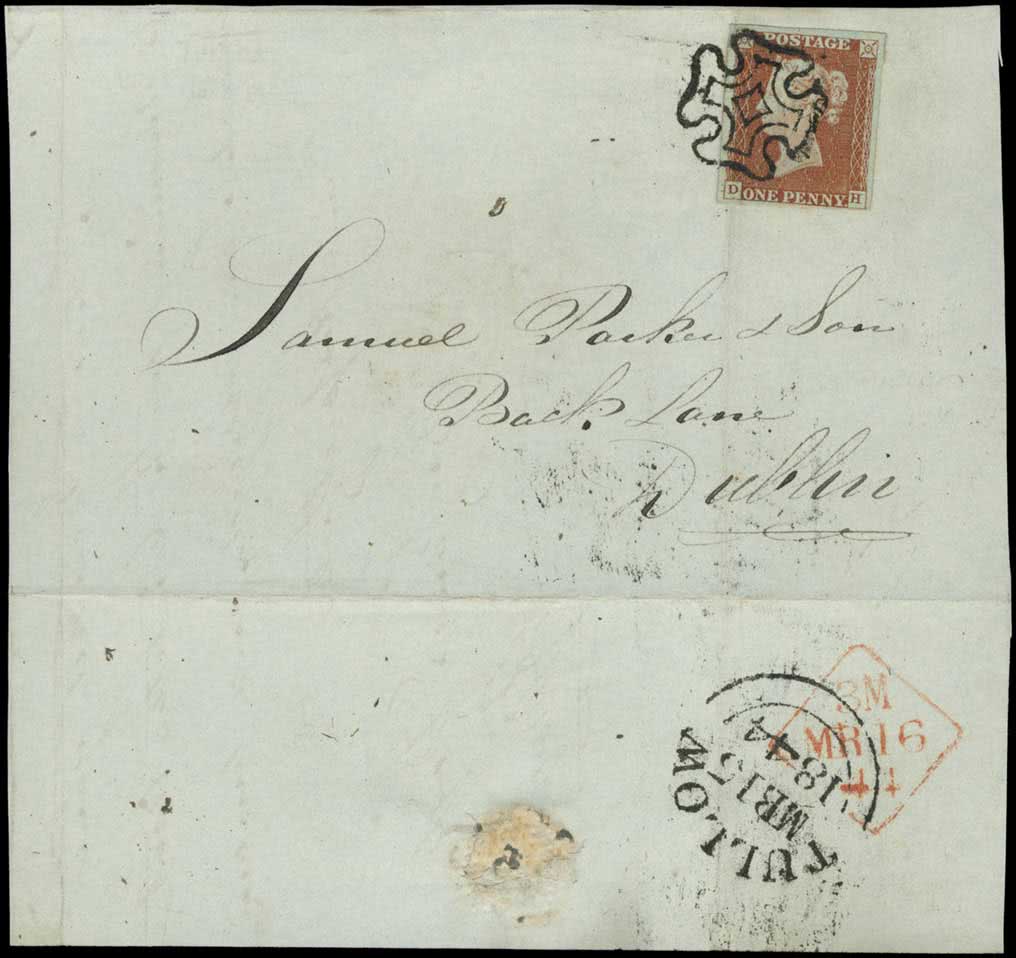 POSTAGE
D ONE PENNY H
Samuel Parker & Son
Back Lane
Dublin
TULLOW
MR 15
1844
3M
MR 16
44